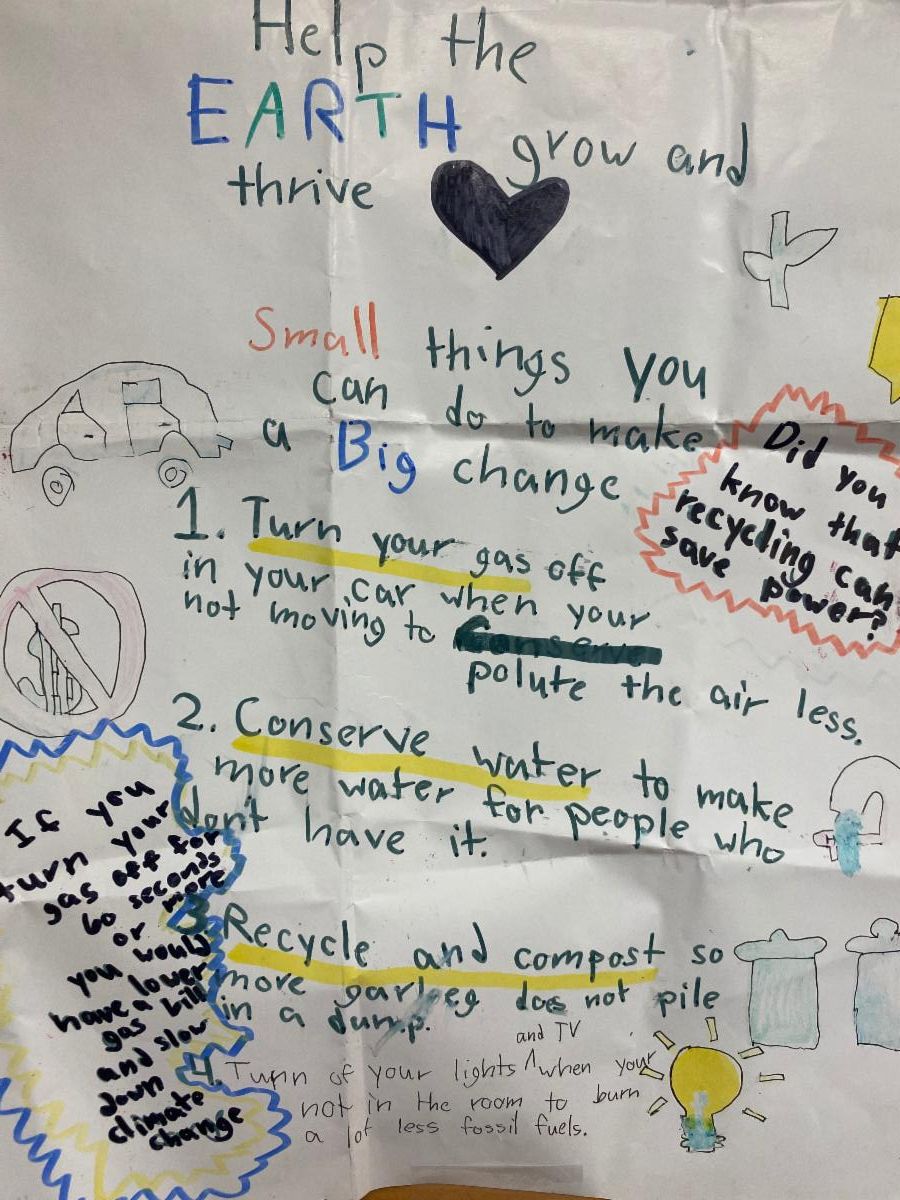 Help the
EARTH grow and
thrive
Small things you
can do to make
a Big change
Did you
know that
recycling can
save power?
1. Turn your gas off
in your car when your
not moving to Conserve
polute the air less.
2. Conserve water to make
more water for people who
dont have it.
If you
turn your
gas off for
60 seconds
or more
you would
have a lower
gas bill
and slow
down
climate
change
3. Recycle and compost so
more garbeg does not pile
in a dump.
and TV
4. Turn of your lights ^ when your
not in the room to burn
a lot less fossil fuels.